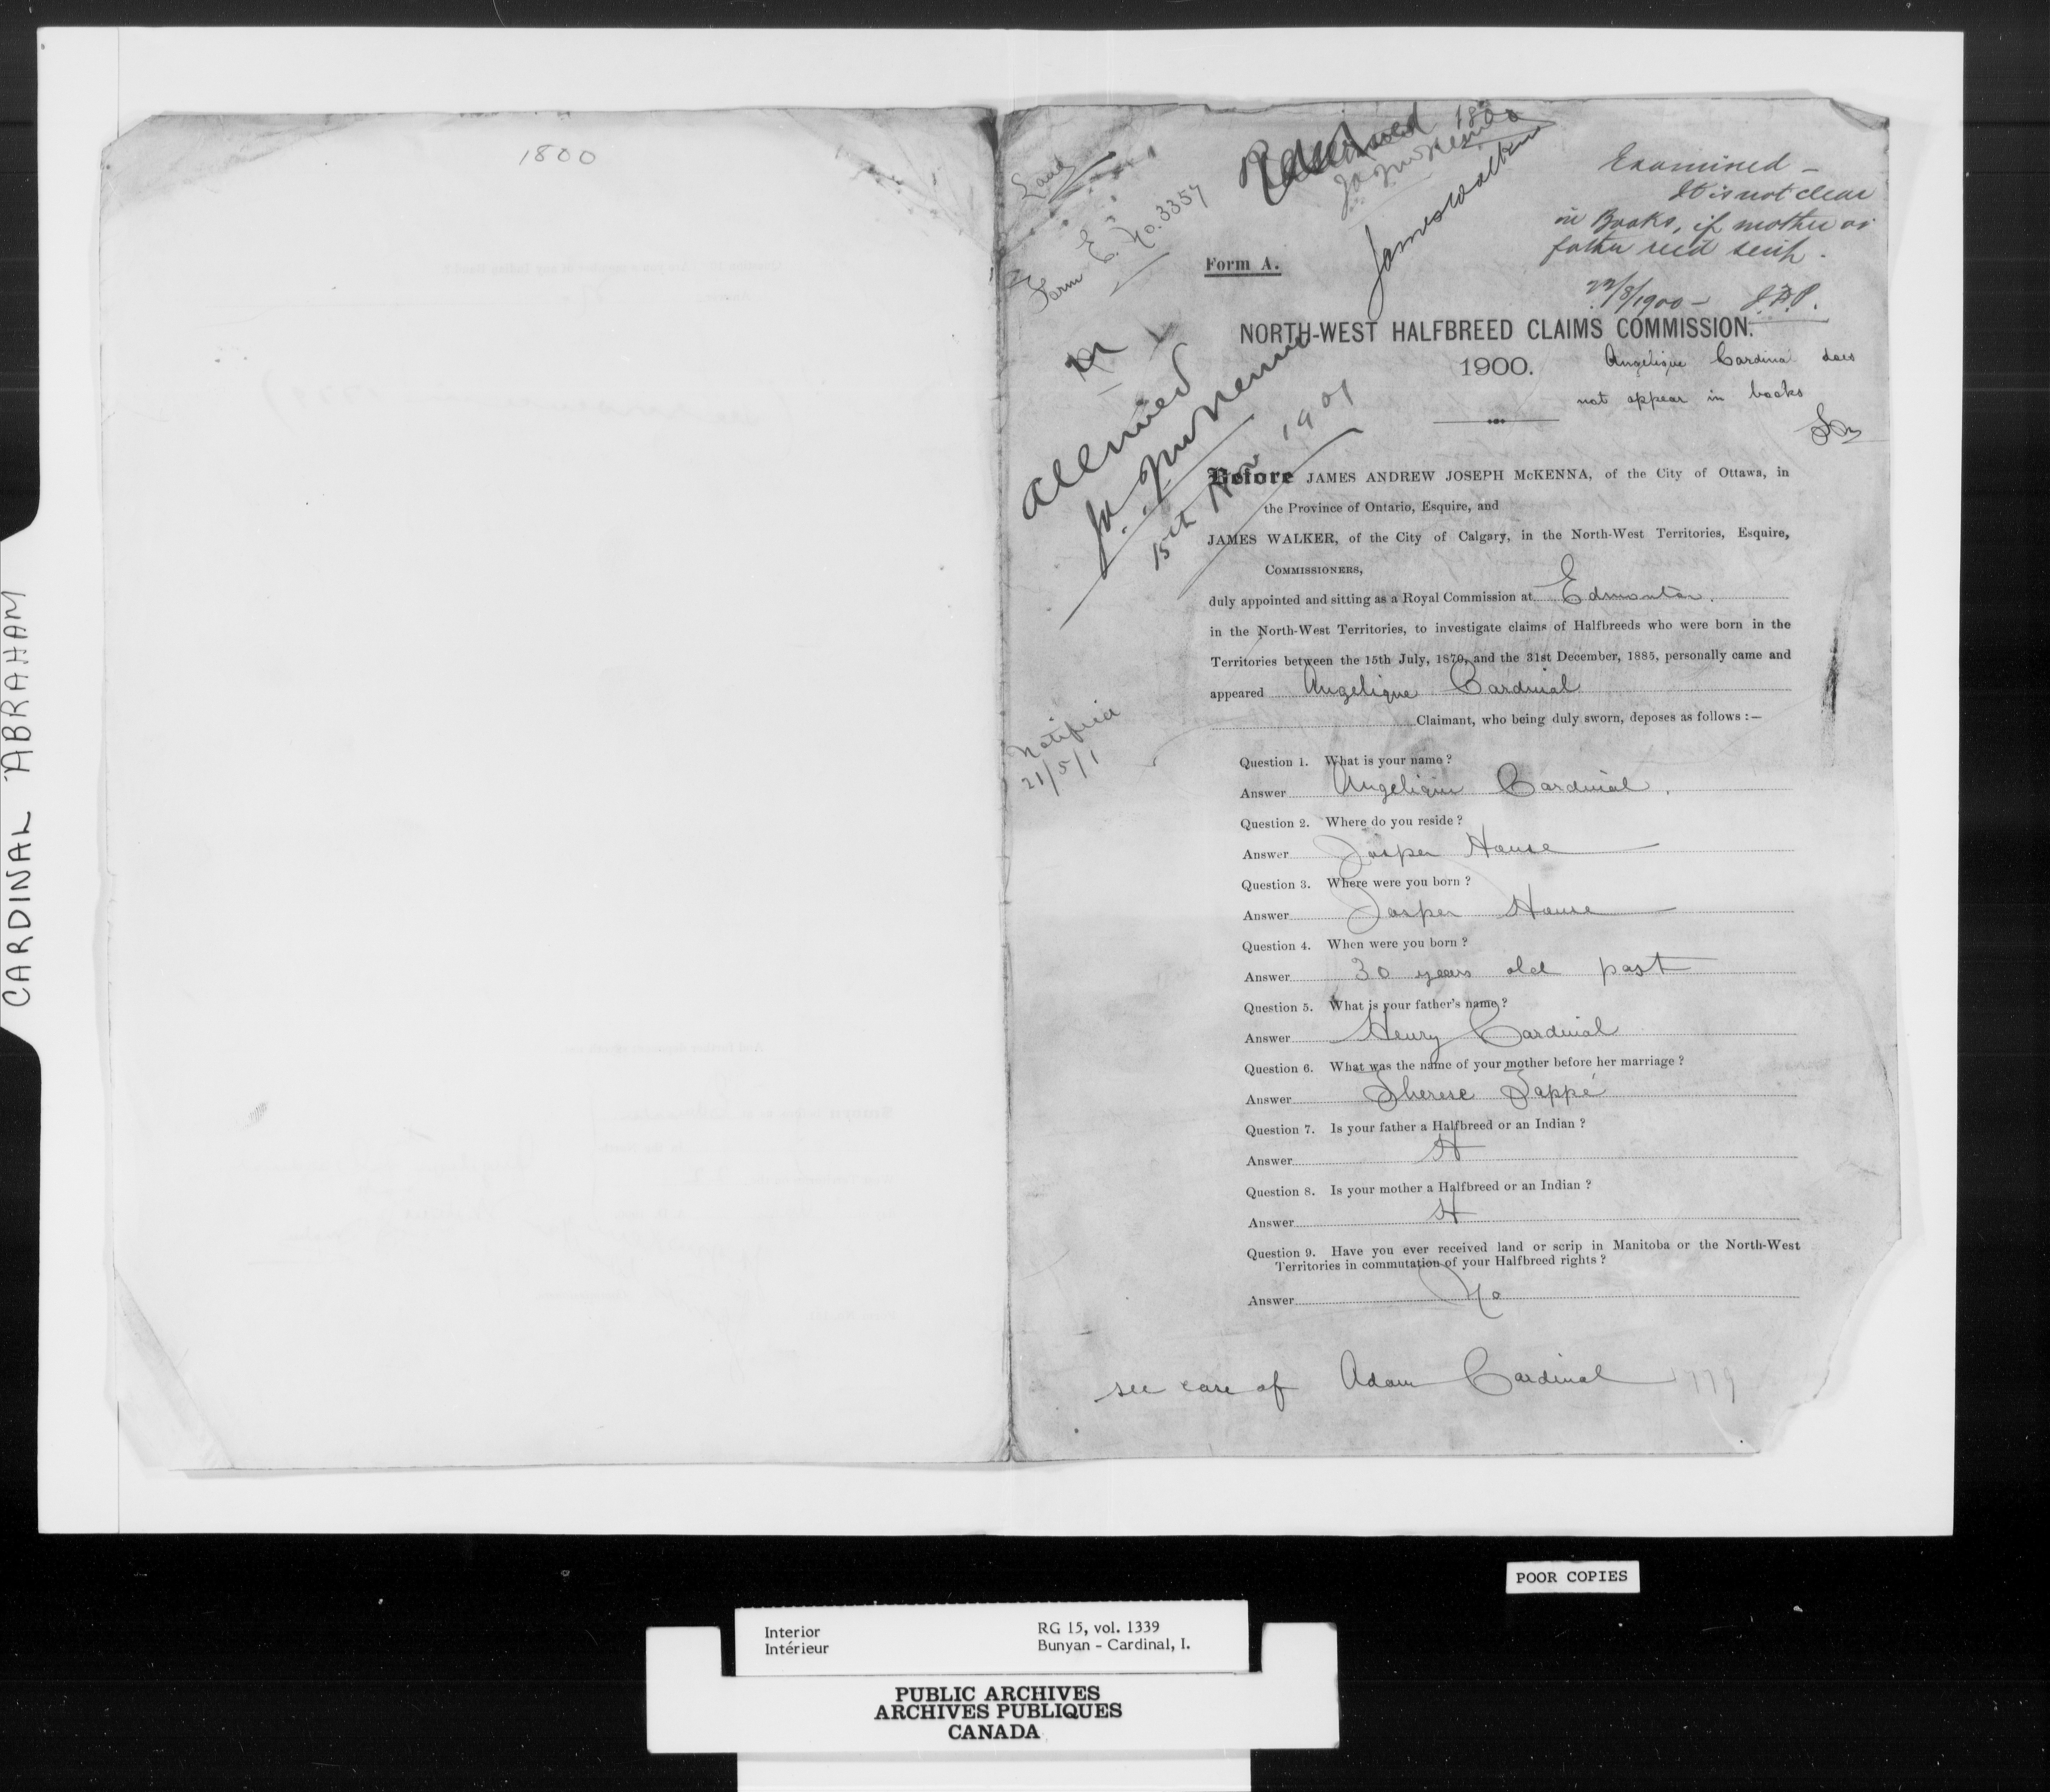 CARDINAL ABRAHAM
1800
Land
Form E. No. 3357
Reserved
1800
JAMcKenna
James Walker
Examined –
It is not clear
in Books, if mother or
father rec'd scrip.
22/8/1900 –
Form A.
NORTH-WEST HALFBREED CLAIMS COMMISSION.
1900.
Angelique Cardinal does
not appear in books
allowed
JAMcKenna
15th Nov 1901
Before JAMES ANDREW JOSEPH McKENNA, of the City of Ottawa, in
the Province of Ontario, Esquire, and
JAMES WALKER, of the City of Calgary, in the North-West Territories, Esquire,
COMMISSIONERS,
duly appointed and sitting as a Royal Commission at Edmonton.
in the North-West Territories, to investigate claims of Halfbreeds who were born in the
Territories between the 15th July, 1870, and the 31st December, 1885, personally came and
appeared Angelique Cardinal
Claimant, who being duly sworn, deposes as follows :—
Notified
21/5/1
Question 1. What is your name ?
Answer Angelique Cardinal.
Question 2. Where do you reside ?
Answer Jasper House
Question 3. Where were you born ?
Answer Jasper House
Question 4. When were you born ?
Answer 30 years old past
Question 5. What is your father's name ?
Answer Henry Cardinal
Question 6. What was the name of your mother before her marriage ?
Answer Therese Jappé
Question 7. Is your father a Halfbreed or an Indian ?
Answer H
Question 8. Is your mother a Halfbreed or an Indian ?
Answer H
Question 9. Have you ever received land or scrip in Manitoba or the North-West
Territories in commutation of your Halfbreed rights ?
Answer No
see case of Adam Cardinal 1779
POOR COPIES
Interior
Intérieur
RG 15, vol. 1339
Bunyan - Cardinal, I.
PUBLIC ARCHIVES
ARCHIVES PUBLIQUES
CANADA